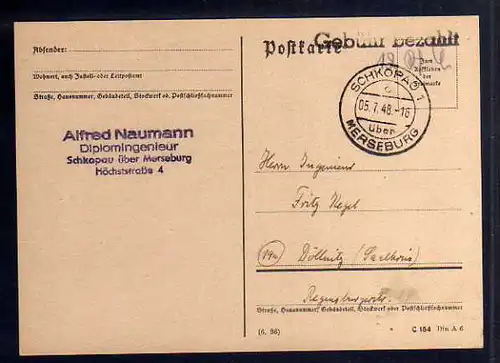 Absender:
Wohnort, auch Zustell- oder Leitpostamt
Straße, Hausnummer, Gebäudeteil, Stockwerk od. Postschließfachnummer
Alfred Naumann
Diplomingenieur
Schkopau über Merseburg
Höchststraße 4
Gebühr bezahlt
Postkarte
Zum
Aufkleben
der
SCHKOPAU 1
c
05.7.48.-16
über
MERSEBURG
Herrn Ingenieur
Fritz Negel
(19a) Döllnitz (Saalkreis)
Regensburgerstr.
Straße, Hausnummer, Gebäudeteil, Stockwerk oder Postschließfachnummer
(6. 36)
C 154 Din A 6